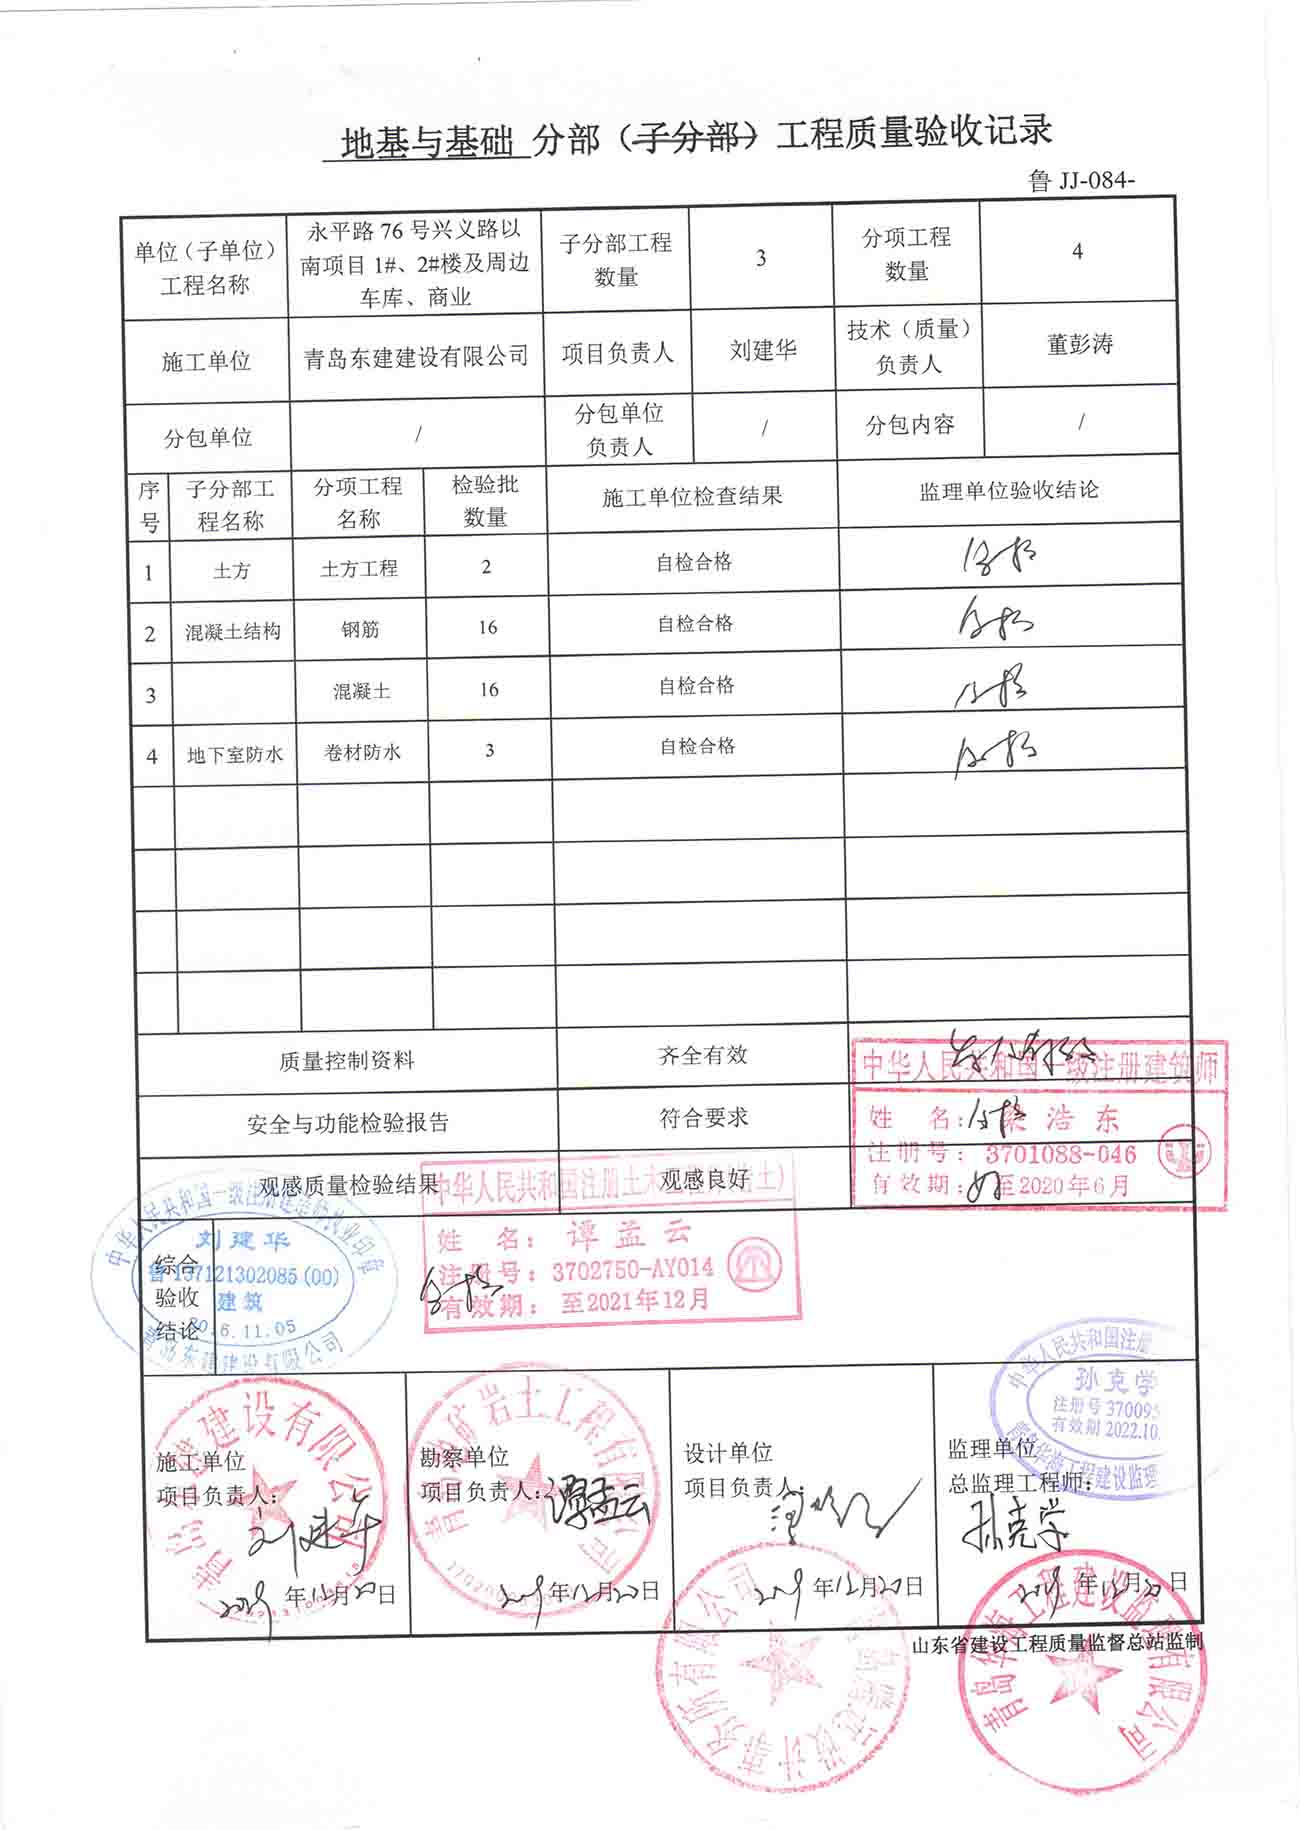 地基与基础 分部（子分部）工程质量验收记录
鲁 JJ-084-
单位（子单位）
工程名称
永平路 76 号兴义路以
南项目 1#、2#楼及周边
车库、商业
子分部工程
数量
3
分项工程
数量
4
施工单位
青岛东建建设有限公司
项目负责人
刘建华
技术（质量）
负责人
董彭涛
分包单位
/
分包单位
负责人
/
分包内容
/
序
号
子分部工
程名称
分项工程
名称
检验批
数量
施工单位检查结果
监理单位验收结论
1
土方
土方工程
2
自检合格
合格
2
混凝土结构
钢筋
16
自检合格
合格
3
混凝土
16
自检合格
合格
4
地下室防水
卷材防水
3
自检合格
合格
质量控制资料
齐全有效
安全与功能检验报告
符合要求
合格
观感质量检验结果
观感良好
好
中华人民共和国一级注册建筑师
姓 名：梁浩东
注册号：3701088-046
有效期：至2020年6月
中华人民共和国注册土木工程师(岩土)
姓 名：谭孟云
注册号：3702750-AY014
有效期：至2021年12月
综合
验收
结论
合格
刘建华
鲁137121302085(00)
建筑
青岛东建建设有限公司
中华人民共和国注册
孙克学
注册号37009
有效期2022.10.
施工单位
项目负责人：
刘建华
2019年12月20日
勘察单位
项目负责人：
谭孟云
2019年12月20日
设计单位
项目负责人：
2019年12月20日
监理单位
总监理工程师：
孙克学
2019年12月20日
山东省建设工程质量监督总站监制
青岛华海工程建设监理有限公司